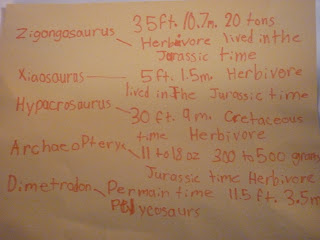 35ft. 10.7m. 20 tons
Zigongosaurus – Herbivore lived in the
Jurassic time
Xiaosaurus – 5 ft. 1.5m. Herbivore
lived in The Jurassic time
Hypacrosaurus – 30 ft. 9m. Cretaceous
time Herbivore
Archaeopteryx – 11 to 18 oz 300 to 500 grams
Jurassic time Herbivore
Dimetrodon – Permain time 11.5 ft. 3.5m
Pelycosaurs